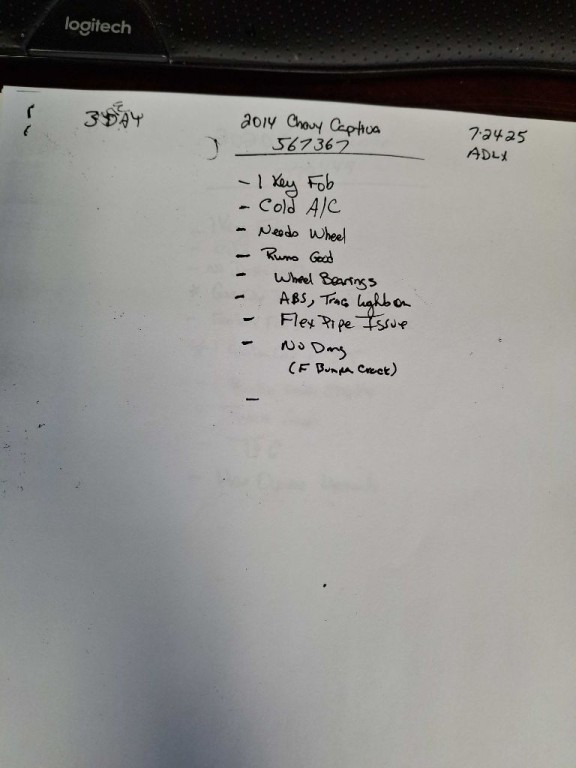 logitech
3 DAY
2014 Chevy Captiva
567367
7-24-25
ADLX
- 1 Key Fob
- Cold A/C
- Needs Wheel
- Runs Good
- Wheel Bearings
- ABS, Trac lights on
- Flex Pipe Issue
- No Dmg
(F Bumper Crack)
-